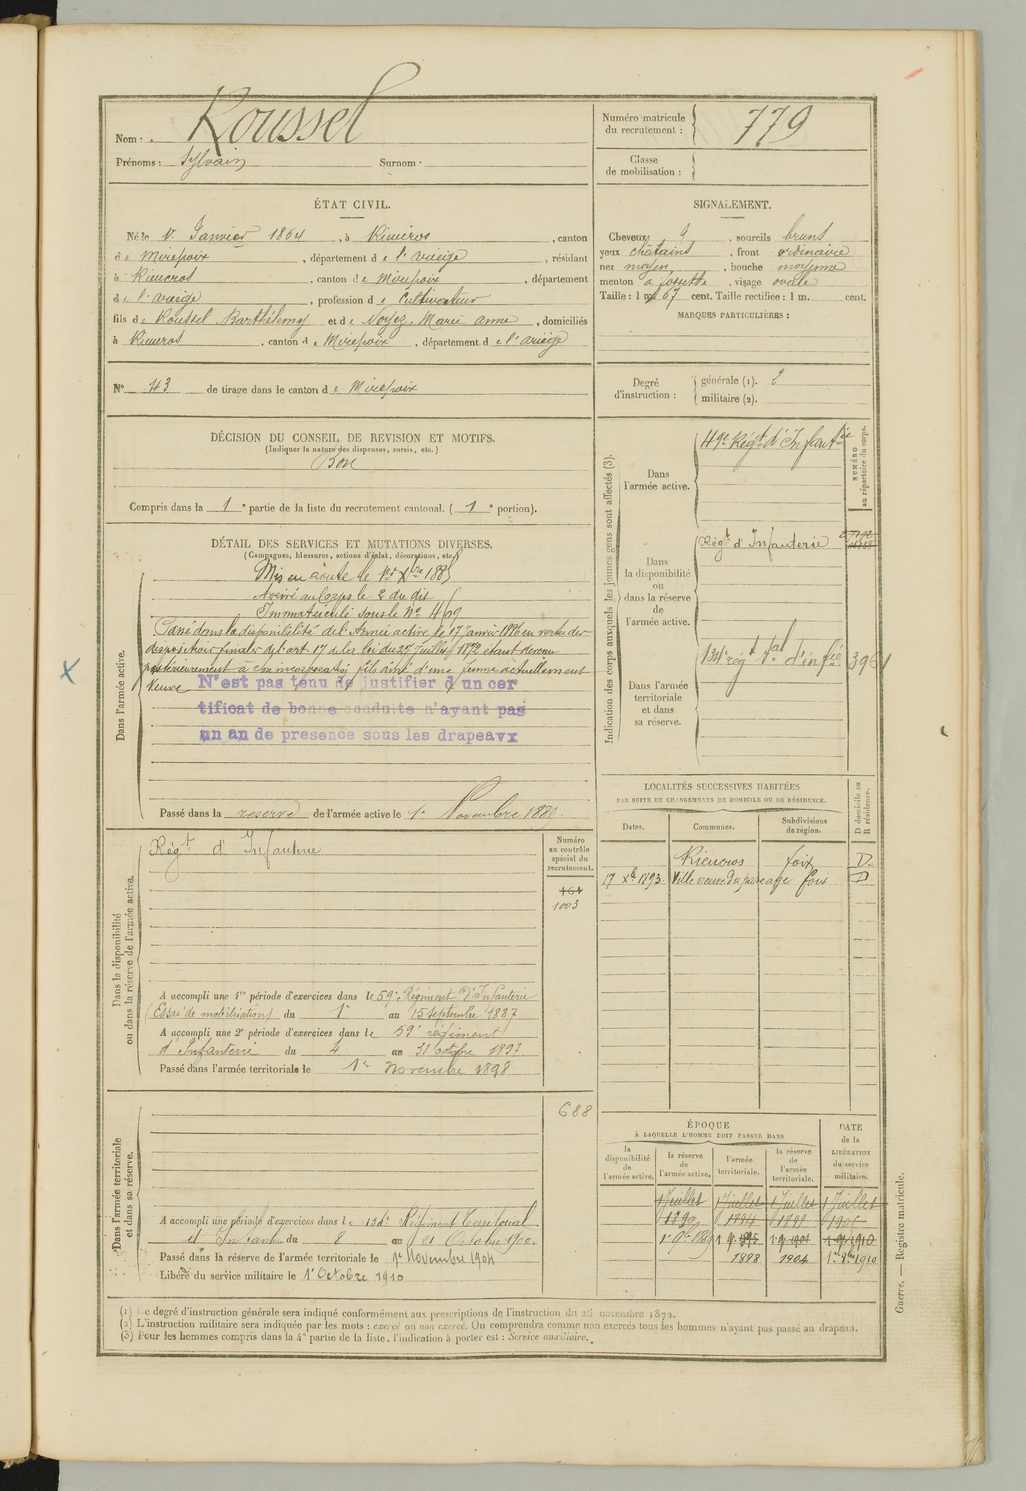 Nom : Roussel
Prénoms : Sylvain Surnom :
Numéro matricule du recrutement : 779
Classe de mobilisation :
ÉTAT CIVIL.
Né le 1er Janvier 1864, à Rieucros, canton
de Mirepoix, département de l'Ariège, résidant
à Rieucros, canton de Mirepoix, département
de l'Ariège, profession de Cultivateur
fils de Roussel Barthélemy et de Noyez Marie Anne, domiciliés
à Rieucros, canton de Mirepoix, département de l'Ariège
SIGNALEMENT.
Cheveux, sourcils bruns
yeux châtains, front ordinaire
nez moyen, bouche moyenne
menton à fossette, visage ovale
Taille : 1 m. 67 cent. Taille rectifiée : 1 m. cent.
MARQUES PARTICULIÈRES :
No 43 de tirage dans le canton de Mirepoix
Degré d'instruction : générale (1). 2
militaire (2).
DÉCISION DU CONSEIL DE REVISION ET MOTIFS.
(Indiquer la nature des dispenses, sursis, etc.)
Bon
Compris dans la 1e partie de la liste du recrutement cantonal. (1e portion).
DÉTAIL DES SERVICES ET MUTATIONS DIVERSES.
(Campagnes, blessures, actions d'éclat, décorations, etc.)
Dans l'armée active.
Mis en route le 1er Xbre 1885
Arrivé au Corps le 2 du dit
Immatriculé sous le No 469
Passé dans la disponibilité de l'Armée active le 17 Janvier 1886 en vertu des
dispositions finales de l'art. 17 de la loi du 27 Juillet 1872 étant devenu
postérieurement à son incorporation fils aîné d'une femme actuellement
Veuve
N'est pas tenu de justifier d'un cer
tificat de bonne conduite n'ayant pas
un an de presence sous les drapeaux
Passé dans la reserve de l'armée active le 1er Novembre 1889.
Indication des corps auxquels les jeunes gens sont affectés (3).
NUMÉRO au répertoire du corps.
Dans l'armée active.
49e Régt d'Infanterie
Dans la disponibilité ou dans la réserve de l'armée active.
Régt d'Infanterie
Dans l'armée territoriale et dans sa réserve.
134e régt tal d'infie 3961
LOCALITÉS SUCCESSIVES HABITÉES
PAR SUITE DE CHANGEMENTS DE DOMICILE OU DE RÉSIDENCE.
Dates. Communes. Subdivisions de région. D domicile ou R résidence.
Rieucros foix D.
17 Xbre 1893. Villeneuve du paréage foix D
Dans la disponibilité ou dans la réserve de l'armée active.
Régt d'Infanterie
Numéro au contrôle spécial du recrutement.
464
1003
A accompli une 1re période d'exercices dans le 59e Régiment d'Infanterie
(Essai de mobilisation) du 1er au 15 septembre 1887
A accompli une 2e période d'exercices dans le 59e régiment
d'Infanterie du 4 au 31 octobre 1892
Passé dans l'armée territoriale le 1er Novembre 1898
Dans l'armée territoriale et dans sa réserve.
688
A accompli une période d'exercices dans le 134e Régiment Territorial
d'Infanterie du 8 au 21 Octobre 1900.
Passé dans la réserve de l'armée territoriale le 1er Novembre 1904
Libéré du service militaire le 1er Octobre 1910
ÉPOQUE
À LAQUELLE L'HOMME DOIT PASSER DANS
la disponibilité de l'armée active. la réserve de l'armée active. l'armée territoriale. la réserve de l'armée territoriale.
DATE de la LIBÉRATION du service militaire.
1 Juillet 1 Juillet 1 Juillet 1 Juillet
1898 1904 1er 8bre 1910
(1) Le degré d'instruction générale sera indiqué conformément aux prescriptions de l'instruction du 26 novembre 1872.
(2) L'instruction militaire sera indiquée par les mots : exercé ou non exercé. On comprendra comme non exercés tous les hommes n'ayant pas passé au drapeau.
(3) Pour les hommes compris dans la 4e partie de la liste, l'indication à porter est : Service auxiliaire.
Guerre. — Registre matricule.